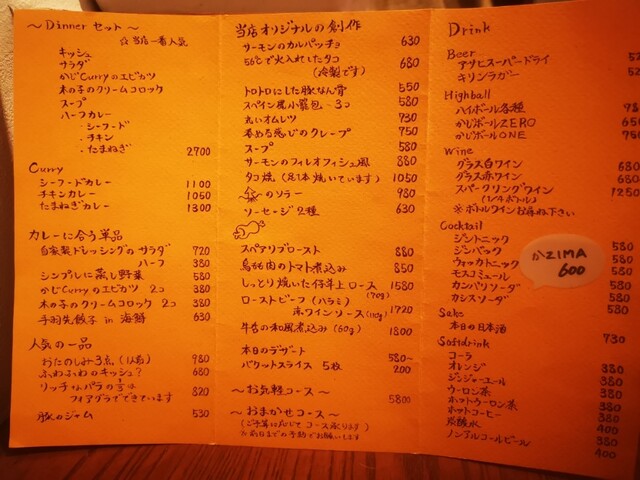 〜Dinner セット〜
☆当店一番人気
キッシュ
サラダ
かじCurryのエビカツ
木の子のクリームコロッケ
スープ
ハーフカレー
・シーフード
・チキン
・たまねぎ 2700
Curry
シーフードカレー 1100
チキンカレー 1050
たまねぎカレー 1300
カレーに合う単品
自家製ドレッシングのサラダ 720
ハーフ 380
シンプルに蒸し野菜 580
かじCurryのエビカツ 2コ 380
木の子のクリームコロッケ 2コ 380
手羽先餃子 in 海鮮 630
人気の一品
おたのしみ3点(1人前) 980
ふわふわのキッシュ? 680
リッチなパラの
フォアグラでできています 820
豚のジャム 530
当店オリジナルの創作
サーモンのカルパッチョ 630
56℃で火入れしたタコ 680
(冷製です)
トロトロにした豚なん骨 580
スペイン風小籠包・3コ 580
丸いオムレツ 730
巻める感じのクレープ 750
スープ 580
サーモンのフィレオフィシュ風 880
タコ焼(足1本焼いています) 1050
のソテー 980
ソーセージ2種 630
スペアリブロースト 880
鳥もも肉のトマト煮込み 850
しっとり焼いた仔羊上ロース 1580
(70g)
ローストビーフ(ハラミ)
赤ワインソース(110g) 1720
牛舌の和風煮込み(60g) 1800
本日のデザート 580~
バケットスライス 5枚 200
〜お気軽コース〜 5800
〜おまかせコース〜
(ご予算に応じてコース承ります)
※前日までの予約でお願いします
Drink
Beer
アサヒスーパードライ
キリンラガー
Highball
ハイボール各種
かじボールZERO 650
かじボールONE
Wine
グラス白ワイン 680
グラス赤ワイン 680
スパークリングワイン 1250
(1/4ボトル)
※ボトルワインお尋ね下さい
Cocktail
ジントニック 580
ジンバック 580
ウォッカトニック 580
モスコミュール 580
カンパリソーダ 580
カシスソーダ 580
かZIMA
600
Sake
本日の日本酒 730
Softdrink
コーラ 380
オレンジ 380
ジンジャーエール 380
ウーロン茶 380
ホットウーロン茶 380
ホットコーヒー 380
炭酸水 400
ノンアルコールビール 380
400